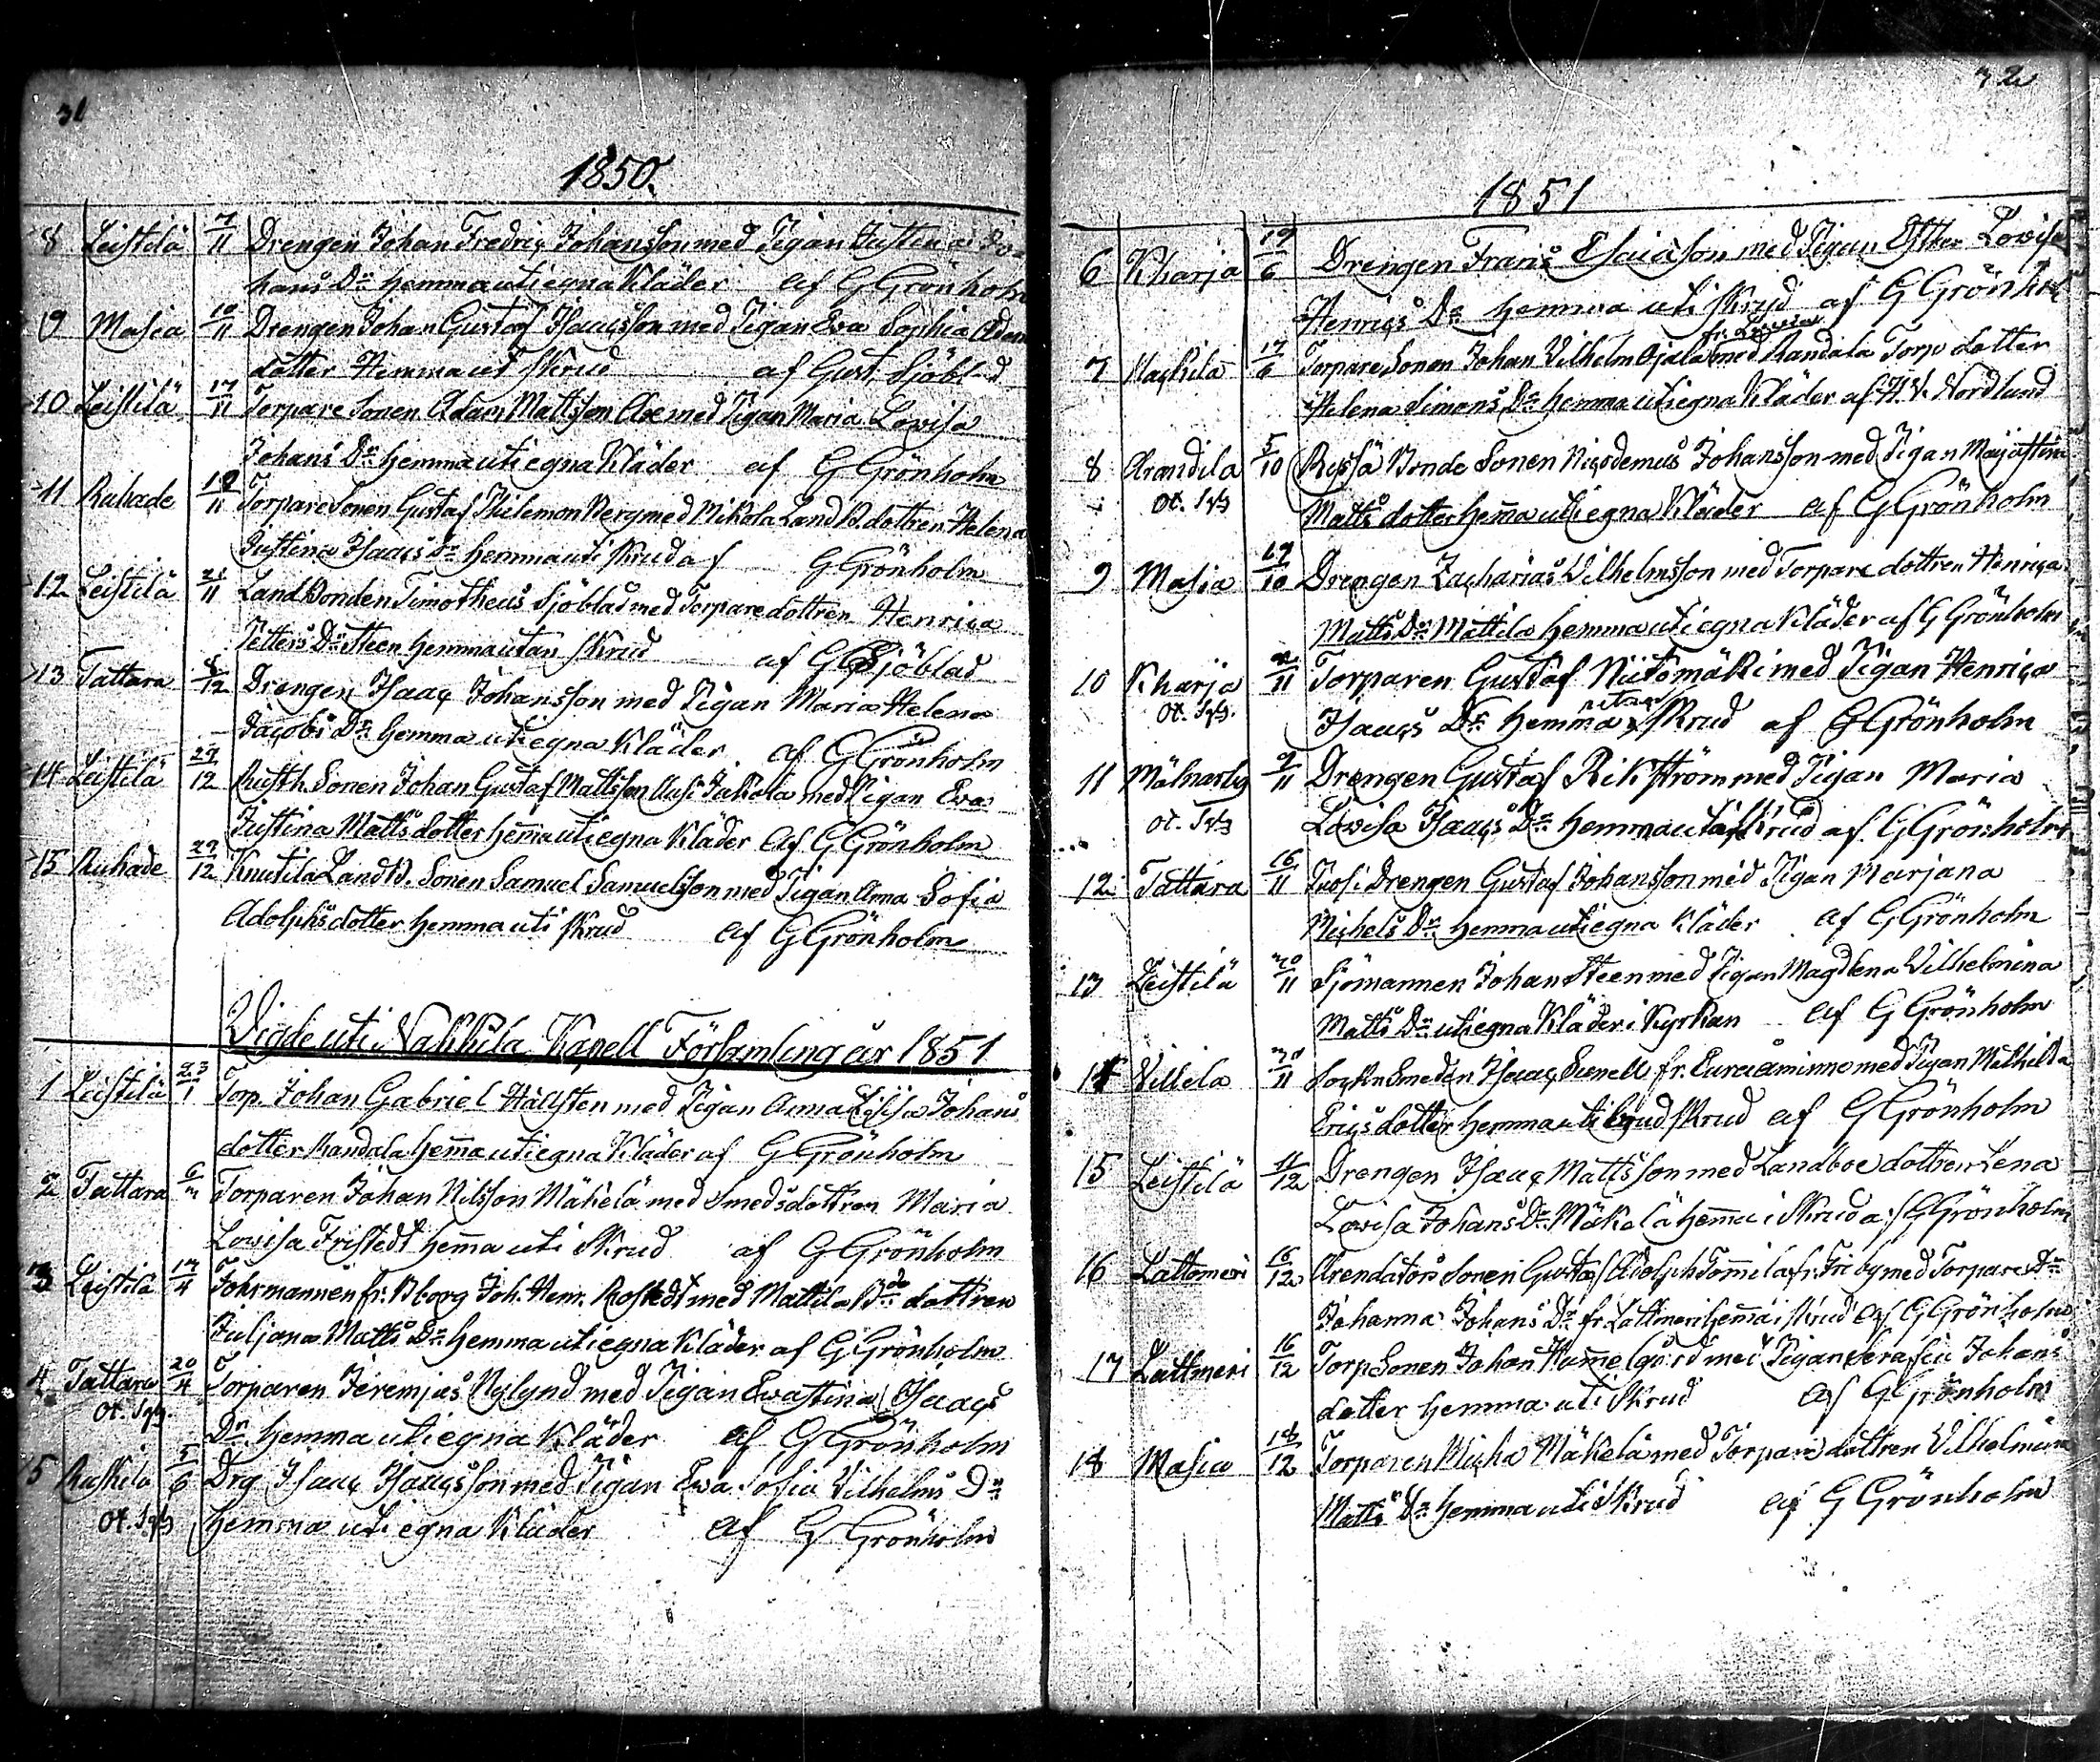 31
1850.
8 Leistilä 7/11 Drengen Johan Fredric Johansson med Pigan Justina Jo=
hans Dr hemma uti egna Kläder af G Grönholm
9 Masia 10/11 Drengen Johan Gustaf Isaacsson med Pigan Eva Sophia Adams
dotter Hemma uti skrud af Gust. Sjöblad
10 Leistilä 17/11 Torpare Sonen Adam Mattsson med Pigan Maria Lovisa
Johans Dr hemma uti egna Kläder af G Grönholm
11 Ruhade 19/11 Torpare Sonen Gustaf Philemon Berg med Mikola Land B. dottren Helena
Justina Isaacs Dr hemma uti skrud af G Grönholm
12 Leistilä 21/11 LandBonden Timotheus Sjöblad med Torpare dottren Henrica
Petters Dr Steen hemma utan skrud af G Sjöblad
13 Tattara 8/12 Drengen Isaac Johansson med Pigan Maria Helena
Jacobs Dr hemma uti egna Kläder af G Grönholm
14 Leistilä 29/12 Rusth. Sonen Johan Gustaf Mattsson Jakola med Pigan Eva
Justina Matts dotter hema uti egna Kläder af G Grönholm
15 Ruhade 29/12 Knutila Land B. Sonen Samuel Samuelsson med Pigan Anna Sofia
Adolphs dotter hemma uti skrud af G Grönholm
Vigde uti Nakkila Kapell Församling år 1851
1 Leistilä 23/1 Torp. Johan Gabriel Hällsten med Pigan Anna Lisa Johans
dotter Kandala hema uti egna Kläder af G Grönholm
2 Tattara 6/3 Torparen Johan Nilsson Mäkelä med Smedsdottren Maria
Lovisa Fristedt hema uti skrud af G Grönholm
3 Leistilä 17/4 Johrmannen fr. Bborg Joh. Henr. Rostedt med Mattila Bde dottren
Juljana Matts Dr hemma uti egna Kläder af G Grönholm
4 Tattara 20/4 Torparen Jeremias Nylund med Pigan Evastina Isaacs
Ot. Sgb. Dr. hemma uti egna Kläder af G Grönholm
5 Ruskila 5/6 Drg Isaac Isaacsson med Pigan Ewa Sofia Vilhelms Dr
Ot. Sgb hemma uti egna Kläder af G Grönholm
32
1851
6 Kharja 19/6 Drengen Frans Esaiasson med Pigan Esther Lovisa
Henrics Dr hemma uti skrud af G Grönholm
7 Kaskila 17/6 Torpare Sonen Johan Vilhelm Ojala med Kandala Torp dotter
Helena Simons Dr hemma uti egna Kläder af H. V. Nordlund
8 Arandila 5/10 Ryssä Bonde Sonen Nicodemus Johansson med Pigan Majastina
Ot. Sgb Matts dotter hema uti egna Kläder af G Grönholm
9 Masia 19/10 Drengen Zacharias Vilhelmsson med Torpare dottren Henrica
Matts Dr Mattila hemma uti egna Kläder af G Grönholm
10 Kharja 2/11 Torparen Gustaf Niitomäki med Pigan Henrica
utan
Ot. Sgb. Isaacs Dr hemma skrud af G Grönholm
11 9/11 Drengen Gustaf Rikström med Pigan Maria
Ot. Sgb Lovisa Isaacs Dr hemma utan skrud af G Grönholm
12 Tattara 16/11 Juosi Drengen Gustaf Johansson med Pigan Marjana
Michels Dr hemma uti egna Kläder af G Grönholm
13 Leistilä 30/11 Sjömannen Johan Steen med Pigan Magdlena Vilhelmina
Matts Dr uti egna Kläder i Kyrkan af G Grönholm
14 Villila 30/11 Sockn Smeden Isaac fr. Euraåminne med Pigan Mathilda
Erics dotter hemma uti brud skrud af G Grönholm
15 Leistilä 11/12 Drengen Isaac Mattsson med Landboe dottren Lena
Lovisa Johans Dr Mäkelä hema i skrud af G Grönholm
16 Lattomeri 16/12 Arendators Sonen Gustaf Adolph Tommila fr. Friby med Torpare Dr
Johanna Johans Dr fr Lattmeri hema i skrud af G Grönholm
17 Lattmeri 16/12 Torp Sonen Johan Humelgård med Pigan Serafia Johans
dotter hemma uti skrud af G Grönholm
18 Masia 18/12 Torparen Micha Mäkelä med Torpare dottren Vilhelmina
Matts Dr hemma uti skrud af G Grönholm